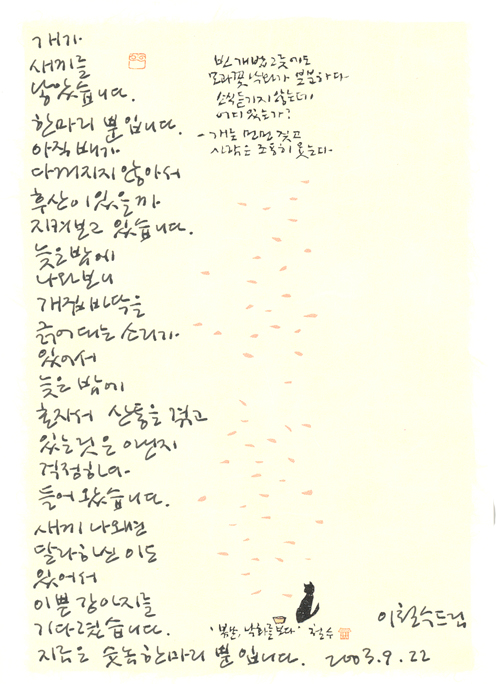 개가
새끼를
낳았습니다.
한마리 뿐입니다.
아직 배가
다 꺼지지 않아서
후산이 있을까
지켜보고 있습니다.
늦은 밤에
나와보니
개집 바닥을
긁어대는 소리가
있어서
늦은 밤에
혼자서 산통을 겪고
있는 것은 아닌지
걱정하다
들어 왔습니다.
새끼 나오면
달라하신 이도
있어서
이쁜 강아지를
기다렸습니다.
지금은 숫놈 한마리 뿐입니다.
빈 개밥그릇에도
모과꽃 낙화가 분분하다
소식 듣기지 않는데
어디 있는가?
개는 먼먼
사람은 조용히 웃는다
'봄밤, 낙화를 보다' 철수
이철수드림
2003.9.22